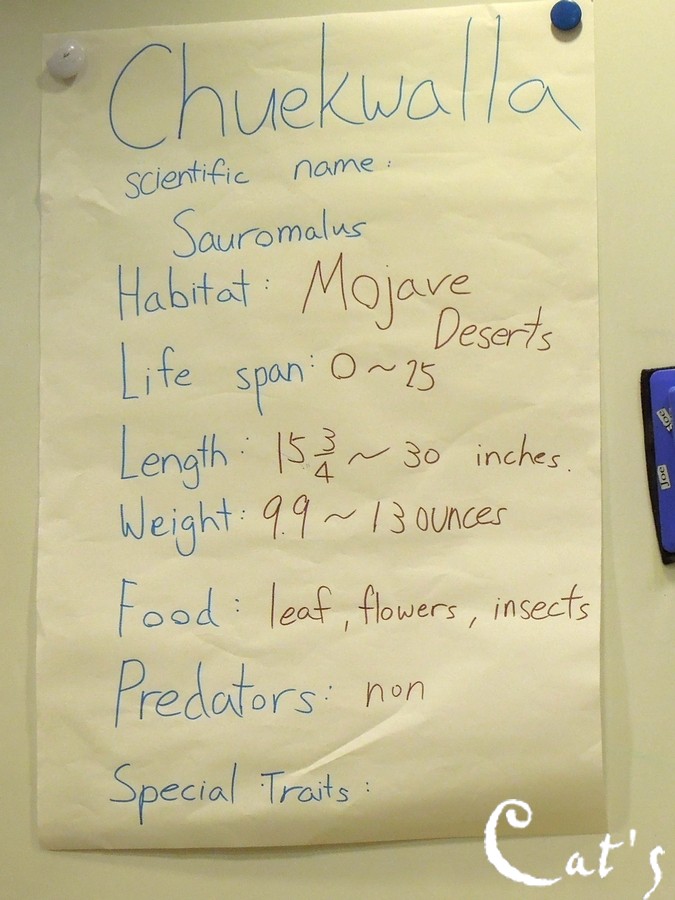 Chuekwalla
scientific name:
Sauromalus
Habitat: Mojave
Deserts
Life span: 0~25
Length: 15 3/4 ~ 30 inches.
Weight: 9.9 ~ 13 ounces
Food: leaf, flowers, insects
Predators: non
Special Traits:
Cat's